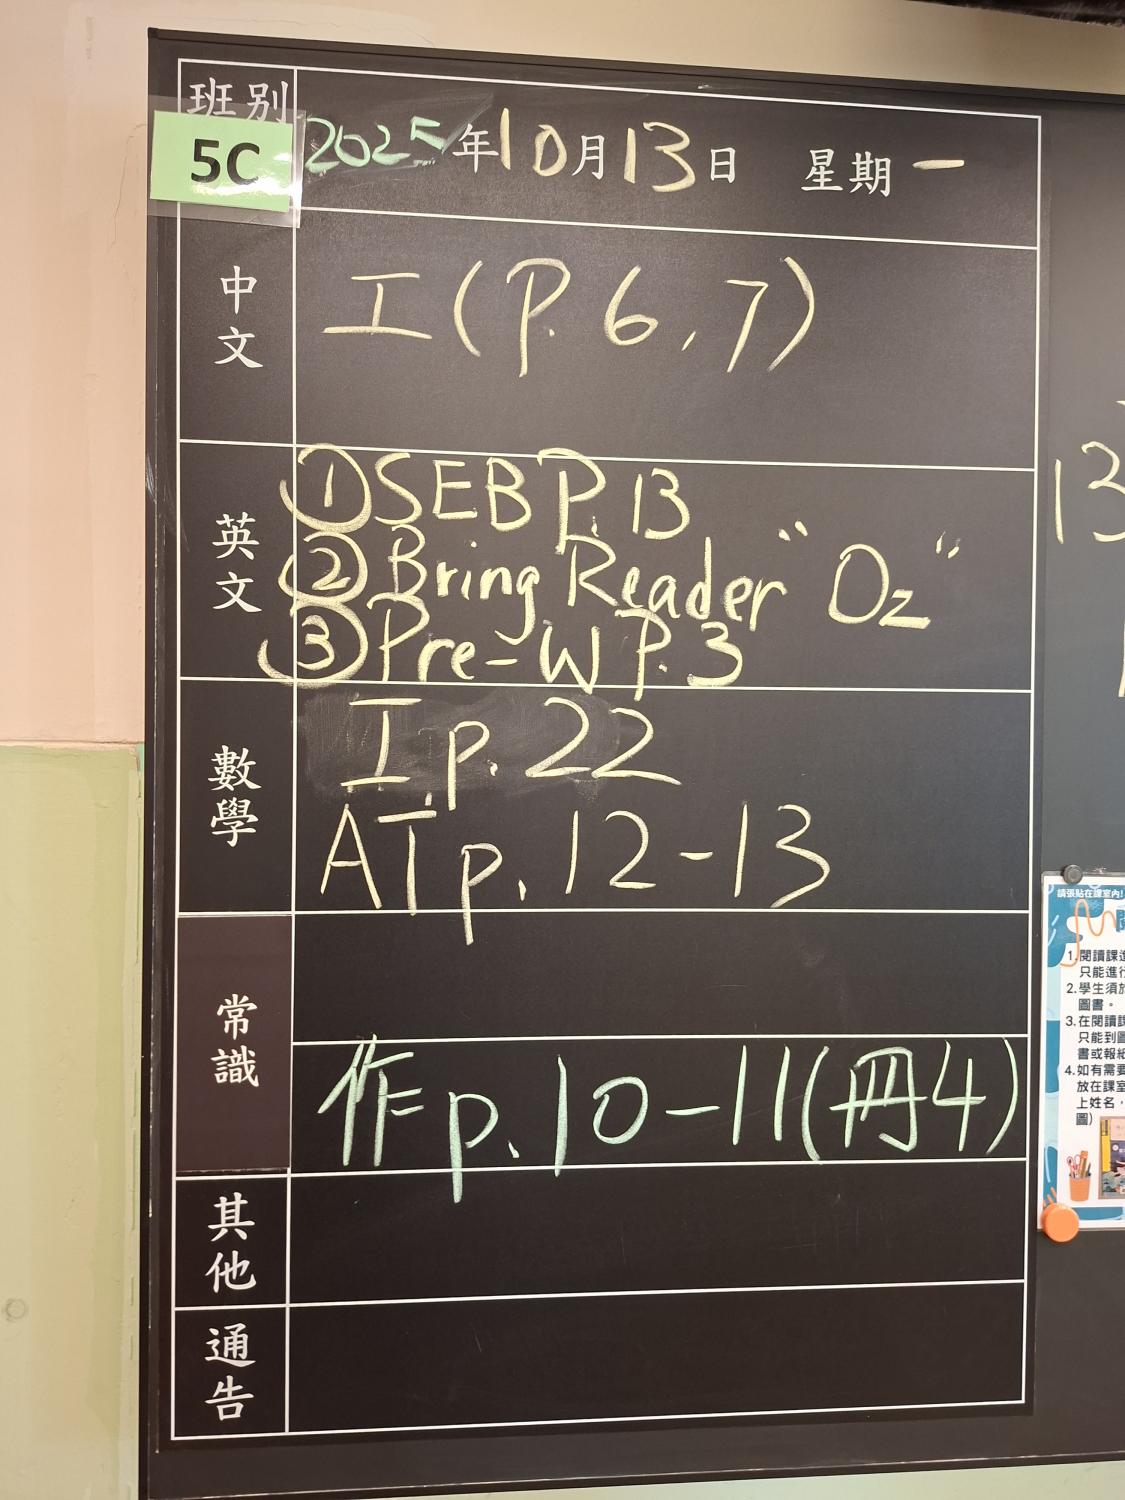 班別
5C
2025年10月13日 星期一
中文
工(P. 6, 7)
英文
①SEB P. 13
②Bring Reader "Oz"
③Pre-W P. 3
數學
工 p. 22
AT p. 12-13
常識
作 p. 10-11(冊4)
其他
通告
13
請張貼在課室內!
1.閱讀課
只能進行
2.學生須
圖書。
3.在閱讀
只能到
書或報
4.如有需要
放在課室
上姓名，
圖)